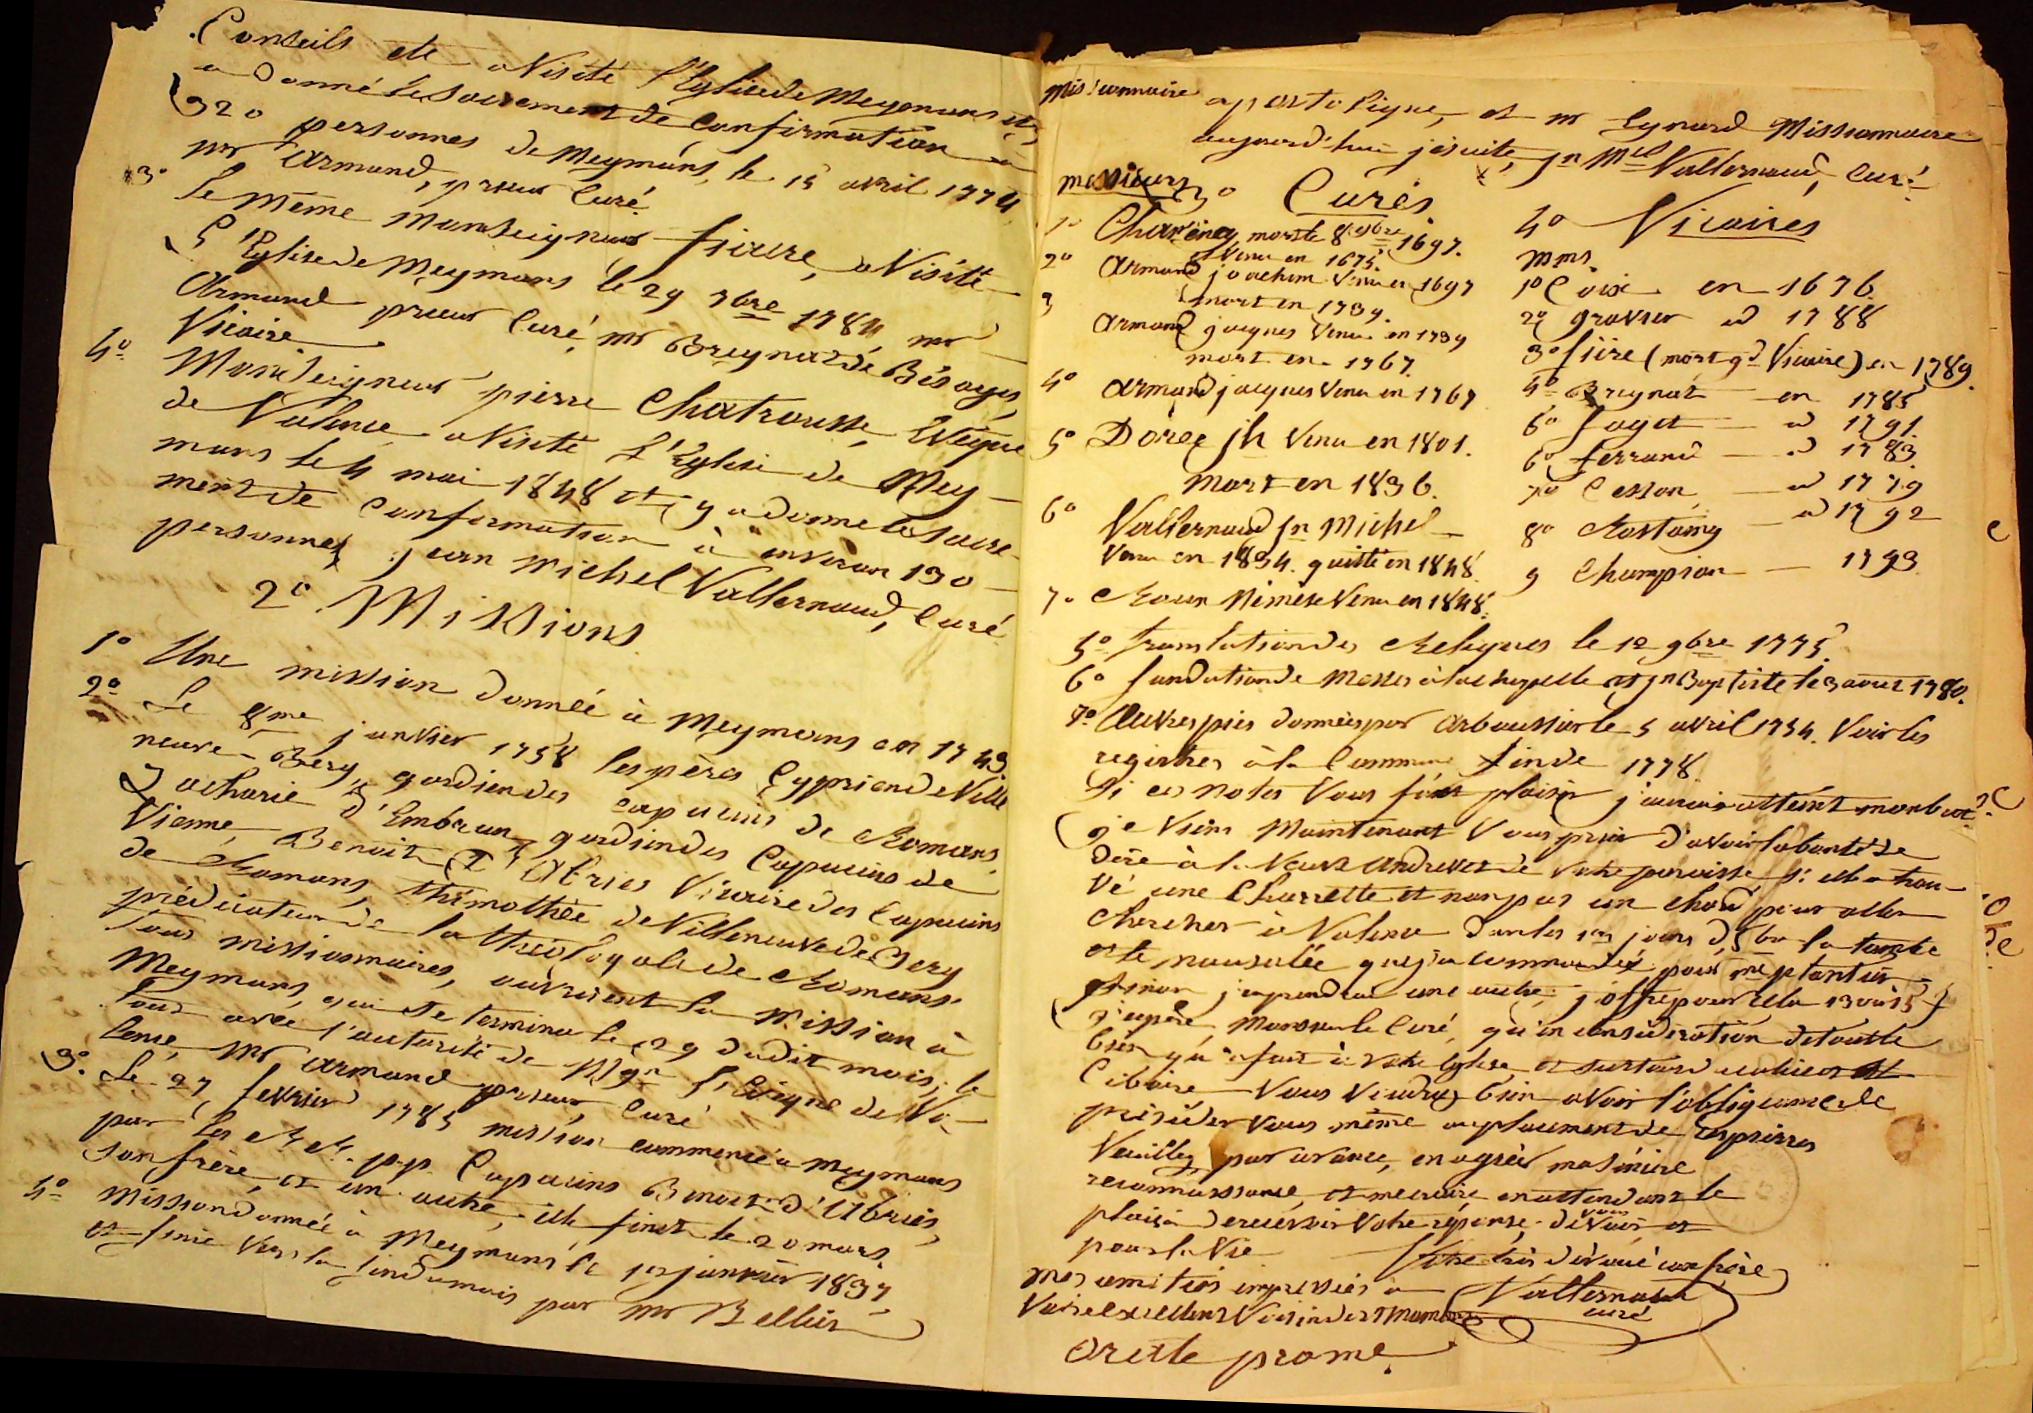 Conseils etc a Visité l'Eglise de Meymans et
a donné le Sacrement de Confirmation à
320 personnes de Meymans, le 15 avril 1774
mr Armand, prieur Curé.
3° Le même Monseigneur fiaure, a Visité
L'Eglise de Meymans le 29 7bre 1784, mr
Armand prieur Curé, mr Breynat de Bésayes
Vicaire
4° Monseigneur pierre Chatrousse, Evêque
de Valence a Visité L'Eglise de Mey-
mans le 4 mai 1848 et y a donné le sacre-
ment de Confirmation à environ 130
personnes jean Michel Vallernaud, Curé
2° Missions
1° Une mission donnée à Meymans en 1743
2° Le 8me janvier 1758 les pères Cyprien de Ville
neuve-Bery, gardien des capucins de Romans
Zacharie d'Embrun, gardien des Capucins de
Vienne, Benoit d'Abries Vicaire des Capucins
de Romans, thimothée de Villeneuve de Bery
prédicateur de la théologale de Romans.
tous missionnaires, ouvrirent la Mission à
Meymans, qui se termina le 29 dudit mois, le
tout avec l'autorité de Mgr l'Evêque de Va-
lence, Mr Armand prieur, Curé
3° Le 27 fevrier 1785 mission commencée à Meymans
par les RR. pp. Capucins Benoit d'Abriés,
son frère, et un autre, elle finit le 20 mars.
4° Mission donnée à Meymans le 1er janvier 1837
et finie Vers la fin du mois par mr Bellier
Missionnaire apostolique, et mr Eynard Missionnaire
aujourd'hui jésuite, jn Mel Vallernaud, Curé
messieurs 3° Curés
1° Charency mort le 8 9bre 1697.
Venu en 1675
2° Armand joachim Venu en 1697
mort en 1739.
3 Armand jacques Venu en 1739
mort en 1767.
4° Armand jacques Venu en 1767
5° Doree jh Venu en 1801.
mort en 1836.
6° Vallernaud jn Michel
Venu en 1834. quitté en 1848.
7° Roux Némèse Venu en 1848.
4° Vicaires
mrs.
1° Coix en 1676
2° gravier id 1788
3° fière (mort gd Vicaire) en 1789.
4° Breynat en 1785
6° faget id 1791.
6° ferrand id 1783.
7° Cesson id 1779
8° Rostaing id 1792
9 Champion 1793
5° translation des Reliques le 12 9bre 1775.
6° fondation de Messes à la chapelle St jn Baptiste le 3 aout 1780.
7° Œuvres pies données par Arboussier le 5 avril 1754. Voir les
registres à la Commune fin de 1778.
Si ces notes Vous font plaisir j'aurais atteint mon but.
je Viens Maintenant Vous prier d'avoir la bonté de
dire à la Veuve Andrevet de Votre paroisse si elle a trou-
vé une Charrette et non pas un char pour aller
Chercher à Valence dans les 1ers jours d' 8bre la tombe
et le mausolée que j'ai commandé pour me planter
sinon j'en prendrai une autre; j'offre pour cela 13 ou 15 f
j'espère, Monsieur le Curé, qu'en considération de tout le
bien que j'ai fait à Votre Eglise et surtout
Ciboire Vous Voudrez bien avoir l'obligeance de
présider Vous même au placement de ces pierres
Veuillez par avance, en agréer ma sincère
reconnaissance, et me croire en attendant le
plaisir de recevoir Votre réponse,
pour la Vie Votre très dévoué confrère
Vallernaud
curé
Mes amitiés empressées à
Votre excellent Voisin de St Mamans
Ora et le prome.